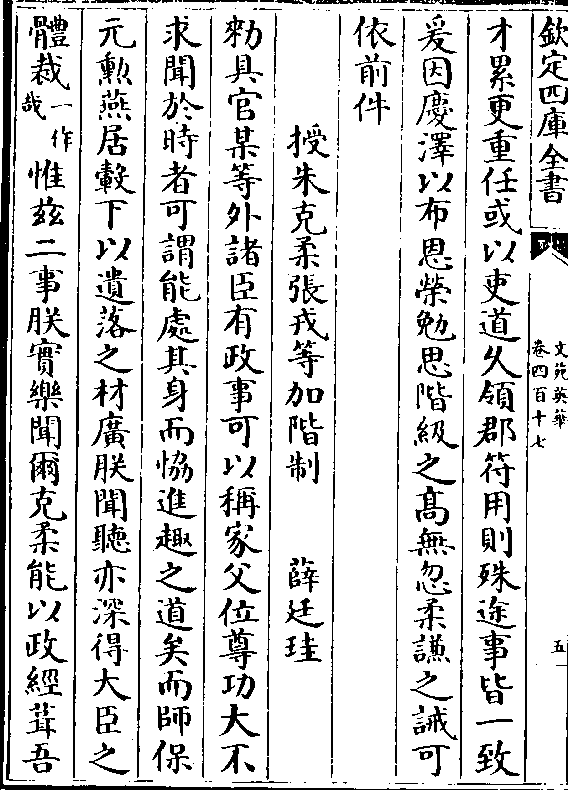 欽定四庫全書
文苑英華
卷四百十七
五
才累更重任或以吏道久領郡符用則殊途事皆一致
爰因慶澤以布恩榮勉思階級之髙無忽柔謙之誡可
依前件
授朱克柔張戎等加階制 薛廷珪
勑具官某等外諸臣有政事可以稱家父位尊功大不
求聞於時者可謂能處其身而恊進趣之道矣而師保
元勲燕居轂下以遺落之材廣朕聞聽亦深得大臣之
體裁一作哉惟兹二事朕實樂聞爾克柔能以政經葺吾